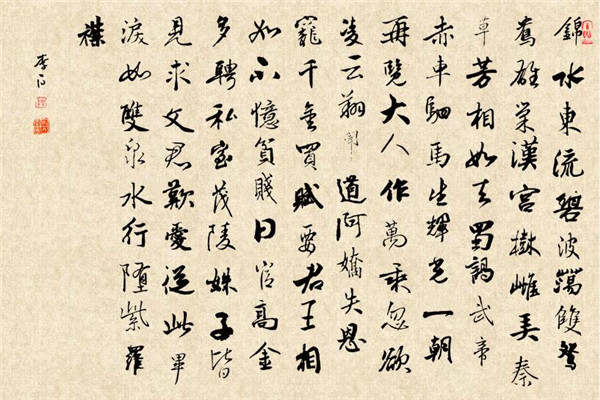 錦水東流碧波蕩雙鴛
鴦雄巢漢宮樹雌弄秦
草芳相如去蜀謁武帝
赤車駟馬生輝光一朝
再覽大人作萬乘忽欲
凌云翔聞道阿嬌失恩
寵千金買賦要君王相
如不憶貧賤日官高金
多聘私室茂陵姝子皆
見求文君歡愛從此畢
淚如雙泉水行墮紫羅
襟
李白